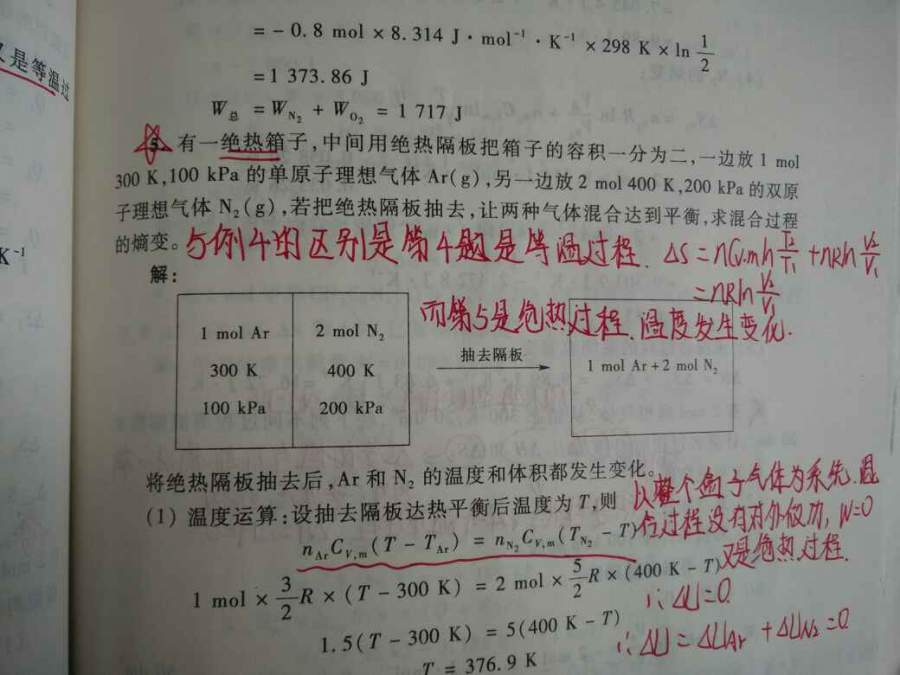 又是等温过
K⁻¹
= − 0.8 mol × 8.314 J · mol⁻¹ · K⁻¹ × 298 K × ln 1/2
= 1 373.86 J
W总 = W_N₂ + W_O₂ = 1 717 J
5. 有一绝热箱子,中间用绝热隔板把箱子的容积一分为二,一边放 1 mol
300 K,100 kPa 的单原子理想气体 Ar(g),另一边放 2 mol 400 K,200 kPa 的双原
子理想气体 N₂(g),若把绝热隔板抽去,让两种气体混合达到平衡,求混合过程
的熵变。与例4的区别是第4题是等温过程. ΔS = nCv.m ln T₂/T₁ + nRln V₂/V₁
= nRln V₂/V₁
解:
而第5是绝热过程、温度发生变化.
1 mol Ar
300 K
100 kPa
2 mol N₂
400 K
200 kPa
抽去隔板
1 mol Ar + 2 mol N₂
将绝热隔板抽去后,Ar 和 N₂ 的温度和体积都发生变化。
(1) 温度运算:设抽去隔板达热平衡后温度为 T,则
以整个盒子气体为系统.
过程没有对外做功, W=0
n_Ar C_V,m (T − T_Ar) = n_N₂ C_V,m (T_N₂ − T)
又是绝热过程.
1 mol × 3/2 R × (T − 300 K) = 2 mol × 5/2 R × (400 K − T)
∴ ΔU=0.
1.5(T − 300 K) = 5(400 K − T)
∴ ΔU = ΔU_Ar + ΔU_N₂ = 0
T = 376.9 K